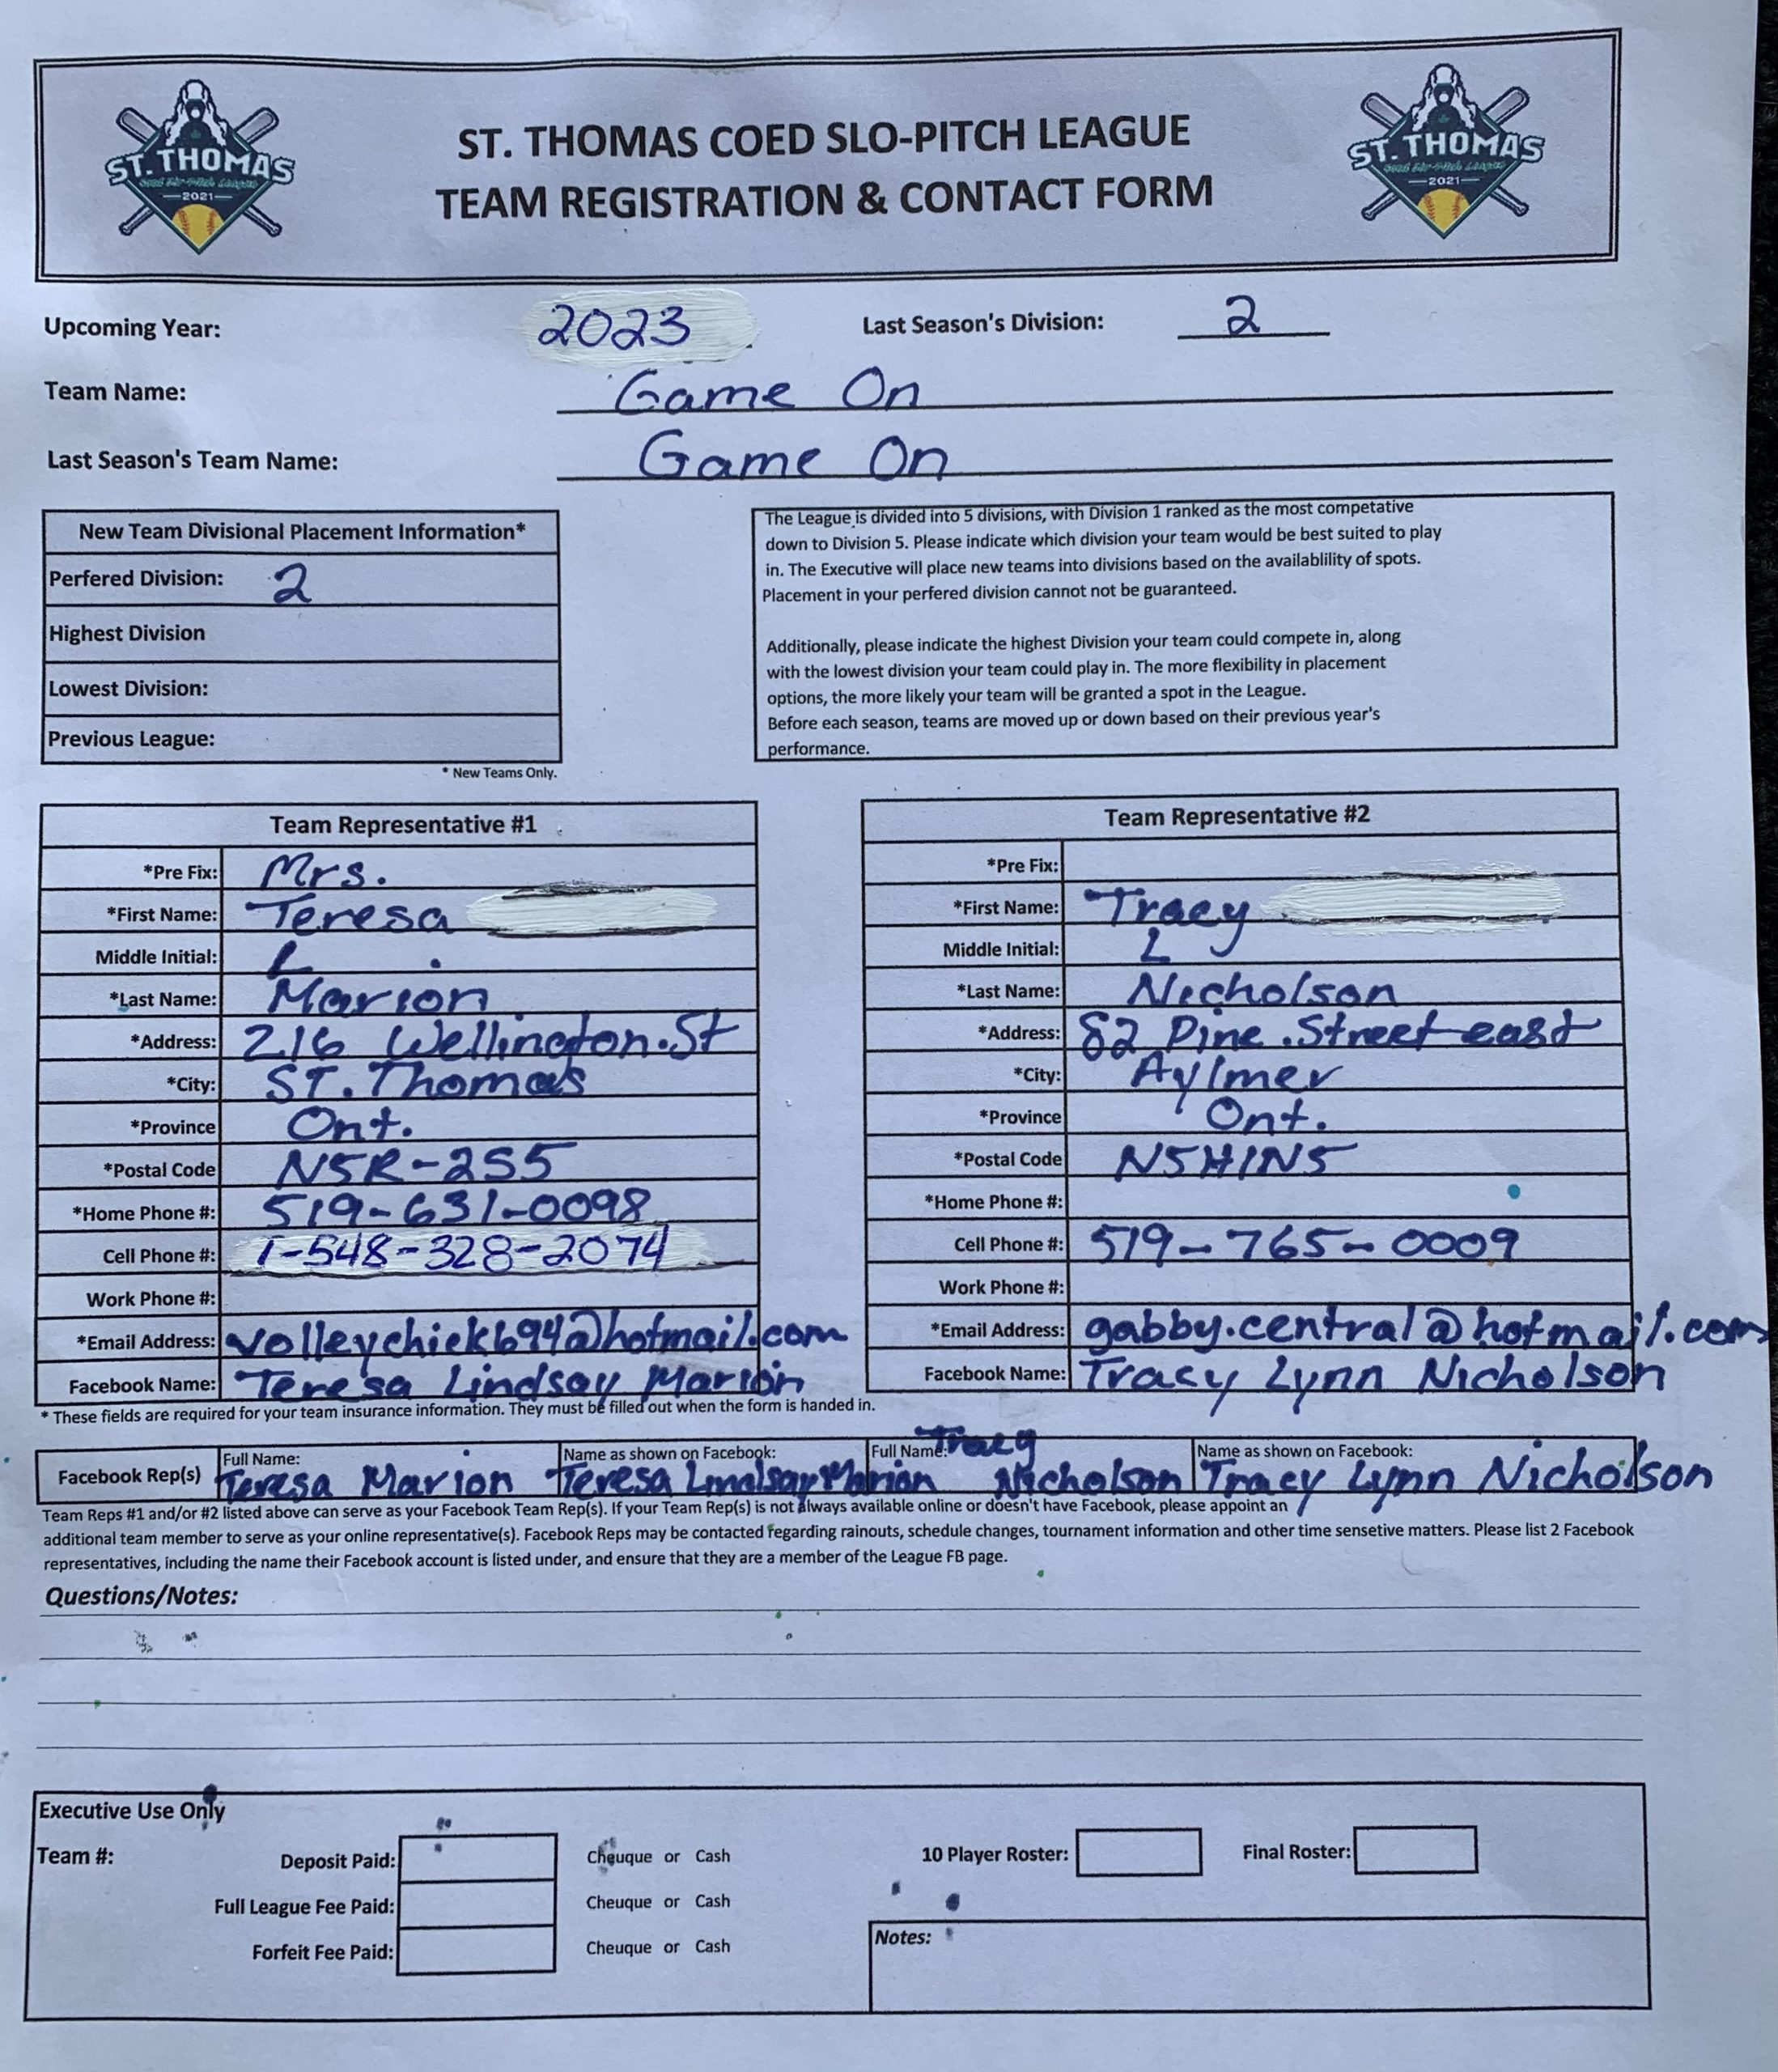 ST. THOMAS
Coed Slo-Pitch League
2021
ST. THOMAS COED SLO-PITCH LEAGUE
TEAM REGISTRATION & CONTACT FORM
ST. THOMAS
Coed Slo-Pitch League
2021
Upcoming Year: 2023 Last Season's Division: 2
Team Name: Game On
Last Season's Team Name: Game On
New Team Divisional Placement Information*
Perfered Division: 2
Highest Division
Lowest Division:
Previous League:
* New Teams Only.
The League is divided into 5 divisions, with Division 1 ranked as the most competative
down to Division 5. Please indicate which division your team would be best suited to play
in. The Executive will place new teams into divisions based on the availablility of spots.
Placement in your perfered division cannot not be guaranteed.
Additionally, please indicate the highest Division your team could compete in, along
with the lowest division your team could play in. The more flexibility in placement
options, the more likely your team will be granted a spot in the League.
Before each season, teams are moved up or down based on their previous year's
performance.
Team Representative #1
*Pre Fix: Mrs.
*First Name: Teresa
Middle Initial: L
*Last Name: Marion
*Address: 216 Wellington.St
*City: ST.Thomas
*Province Ont.
*Postal Code N5R-2S5
*Home Phone #: 519-631-0098
Cell Phone #: 1-548-328-2074
Work Phone #:
*Email Address: volleychick694@hotmail.com
Facebook Name: Teresa Lindsay Marion
Team Representative #2
*Pre Fix:
*First Name: Tracy
Middle Initial: L
*Last Name: Nicholson
*Address: 82 Pine.Street east
*City: Aylmer
*Province Ont.
*Postal Code N5H1N5
*Home Phone #:
Cell Phone #: 519-765-0009
Work Phone #:
*Email Address: gabby.central@hotmail.com
Facebook Name: Tracy Lynn Nicholson
* These fields are required for your team insurance information. They must be filled out when the form is handed in.
Facebook Rep(s)
Full Name: Teresa Marion
Name as shown on Facebook: Teresa Lindsay Marion
Full Name: Tracy Nicholson
Name as shown on Facebook: Tracy Lynn Nicholson
Team Reps #1 and/or #2 listed above can serve as your Facebook Team Rep(s). If your Team Rep(s) is not always available online or doesn't have Facebook, please appoint an
additional team member to serve as your online representative(s). Facebook Reps may be contacted regarding rainouts, schedule changes, tournament information and other time sensetive matters. Please list 2 Facebook
representatives, including the name their Facebook account is listed under, and ensure that they are a member of the League FB page.
Questions/Notes:
Executive Use Only
Team #:
Deposit Paid: Cheuque or Cash
Full League Fee Paid: Cheuque or Cash
Forfeit Fee Paid: Cheuque or Cash
10 Player Roster: Final Roster:
Notes: